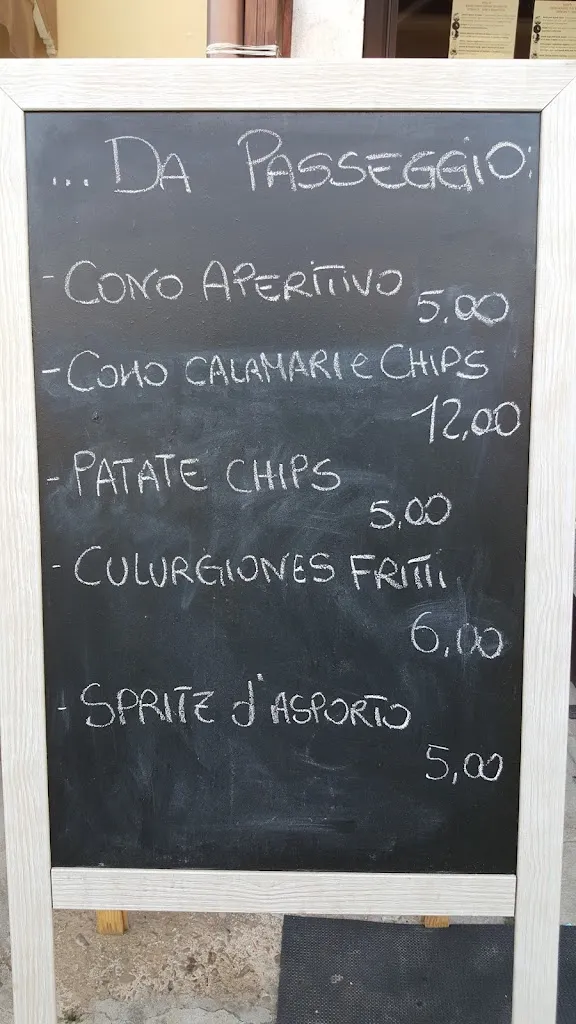 ... DA PASSEGGIO:
- CONO APERITIVO
5.00
- CONO CALAMARI e CHIPS
12,00
- PATATE CHIPS
5,00
- CULURGIONES FRITTI
6,00
- SPRITZ d'ASPORTO
5,00